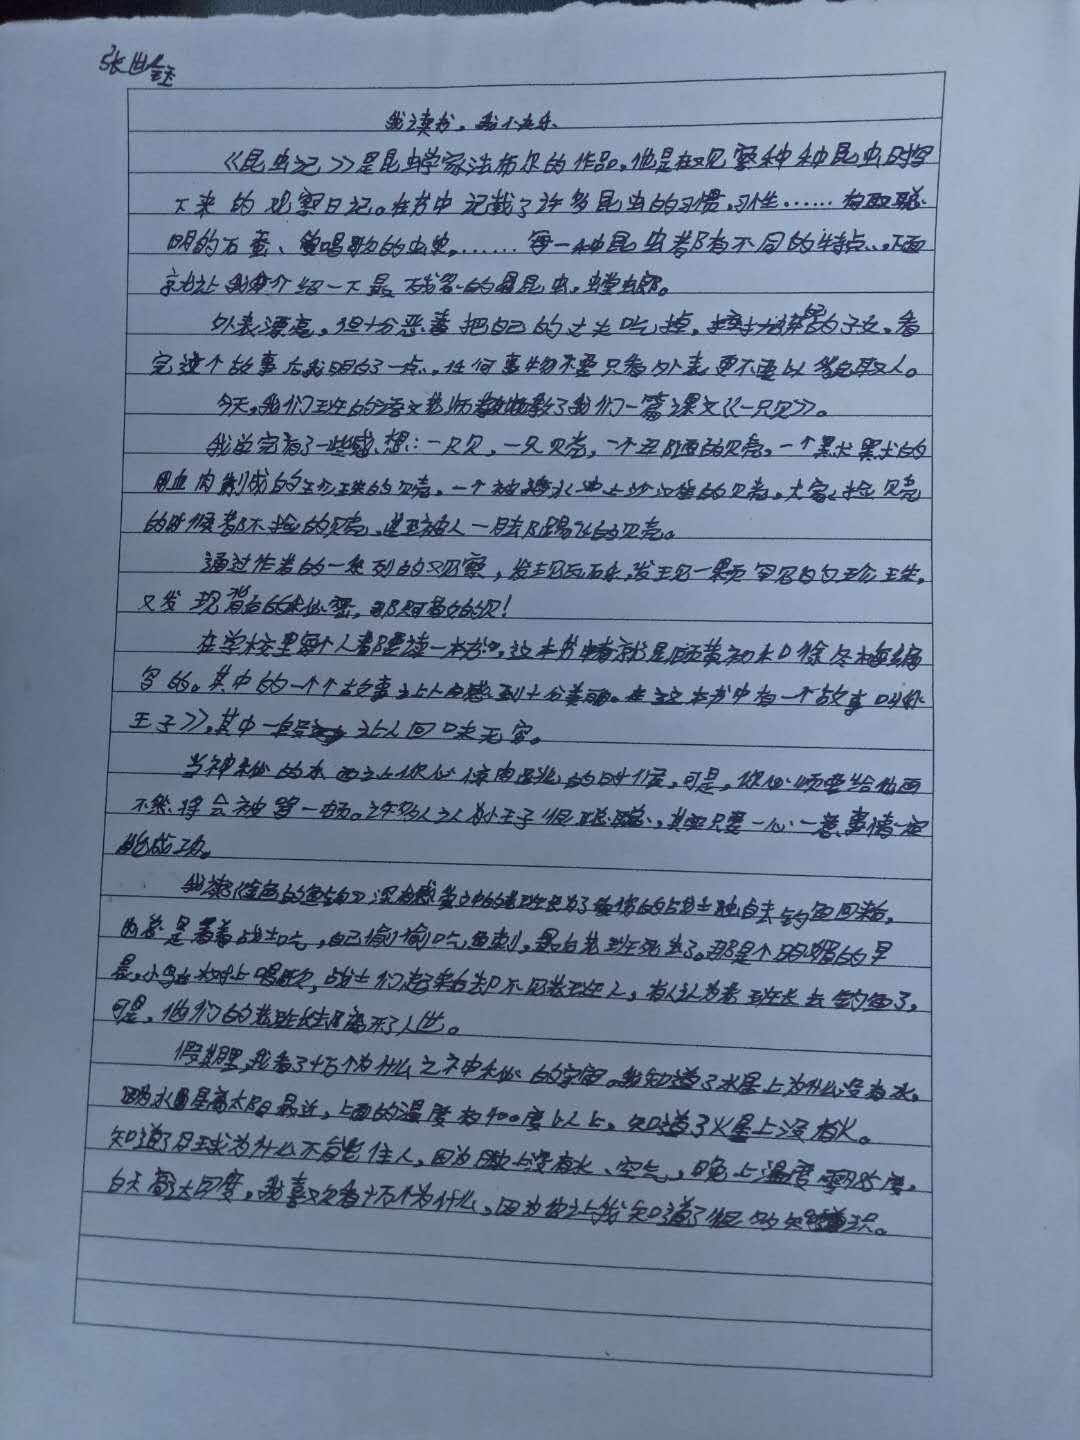 张世钰
我读书,我快乐
《昆虫记》是昆虫学家法布尔的作品,他是在观察种种昆虫时写
下来的观察日记。在书中记载了许多昆虫的习惯,习性……有聪
明的石蚕、会唱歌的虫……每一种昆虫都有不同的特点,下面
就让我介绍一下最残忍的昆虫,螳螂。
外表漂亮,但十分恶毒把自己的丈夫吃掉,的子女,看
完这个故事后我明白了一点,任何事物不要只看外表更不要以貌取人。
今天,我们班的语文老师教了我们一篇课文《一只贝》。
我学完有了一些感想:一只贝,一只贝壳,一个丑陋的贝壳,一个黑犬黑犬的
用血肉制成的珍珠的贝壳,一个被海水冲上沙滩的贝壳,大家捡贝壳
的时候都不捡的贝壳,甚至被人一脚踢飞的贝壳。
通过作者的一系列的观察,发现玩石头,发现一颗罕见的珍珠,
又发现背后的秘密,那可敬的贝!
在学校里每个人都要读一本书,这本书就是顾黄初和徐冬梅编
写的。其中的一个个故事让人感到十分美丽。在这本书中有一个故事叫《
王子》,其中一段让人回味无穷。
当神秘的东西让你心惊肉跳的时候,可是,你必须要给他画
不然将会被骂一顿。许多人认为小王子很聪,其实只要一心一意事情一定
能成功。
我读《金色的鱼钩》深有感老班长为了的战士独自去钓鱼回来后,
总是看着战士吃,自己偷偷吃鱼刺,最后老班长死去了。那是个明媚的早
晨,小鸟在树上唱歌,战士们起来后却不见老班长,有人认为老班长去钓鱼了,
可是,他们的老班长却离开了人世。
假期里,我看了十万个为什么之神秘的宇宙。我知道了水星上为什么没有水,
因为水星离太阳最近,上面的温度有400度以上,知道了火星上没有火。
知道了月球为什么不能住人,因为月球上没有水、空气,晚上温度零下度,
白天高达度,我喜欢看十万个为什么,因为它让我知道了很多知识。